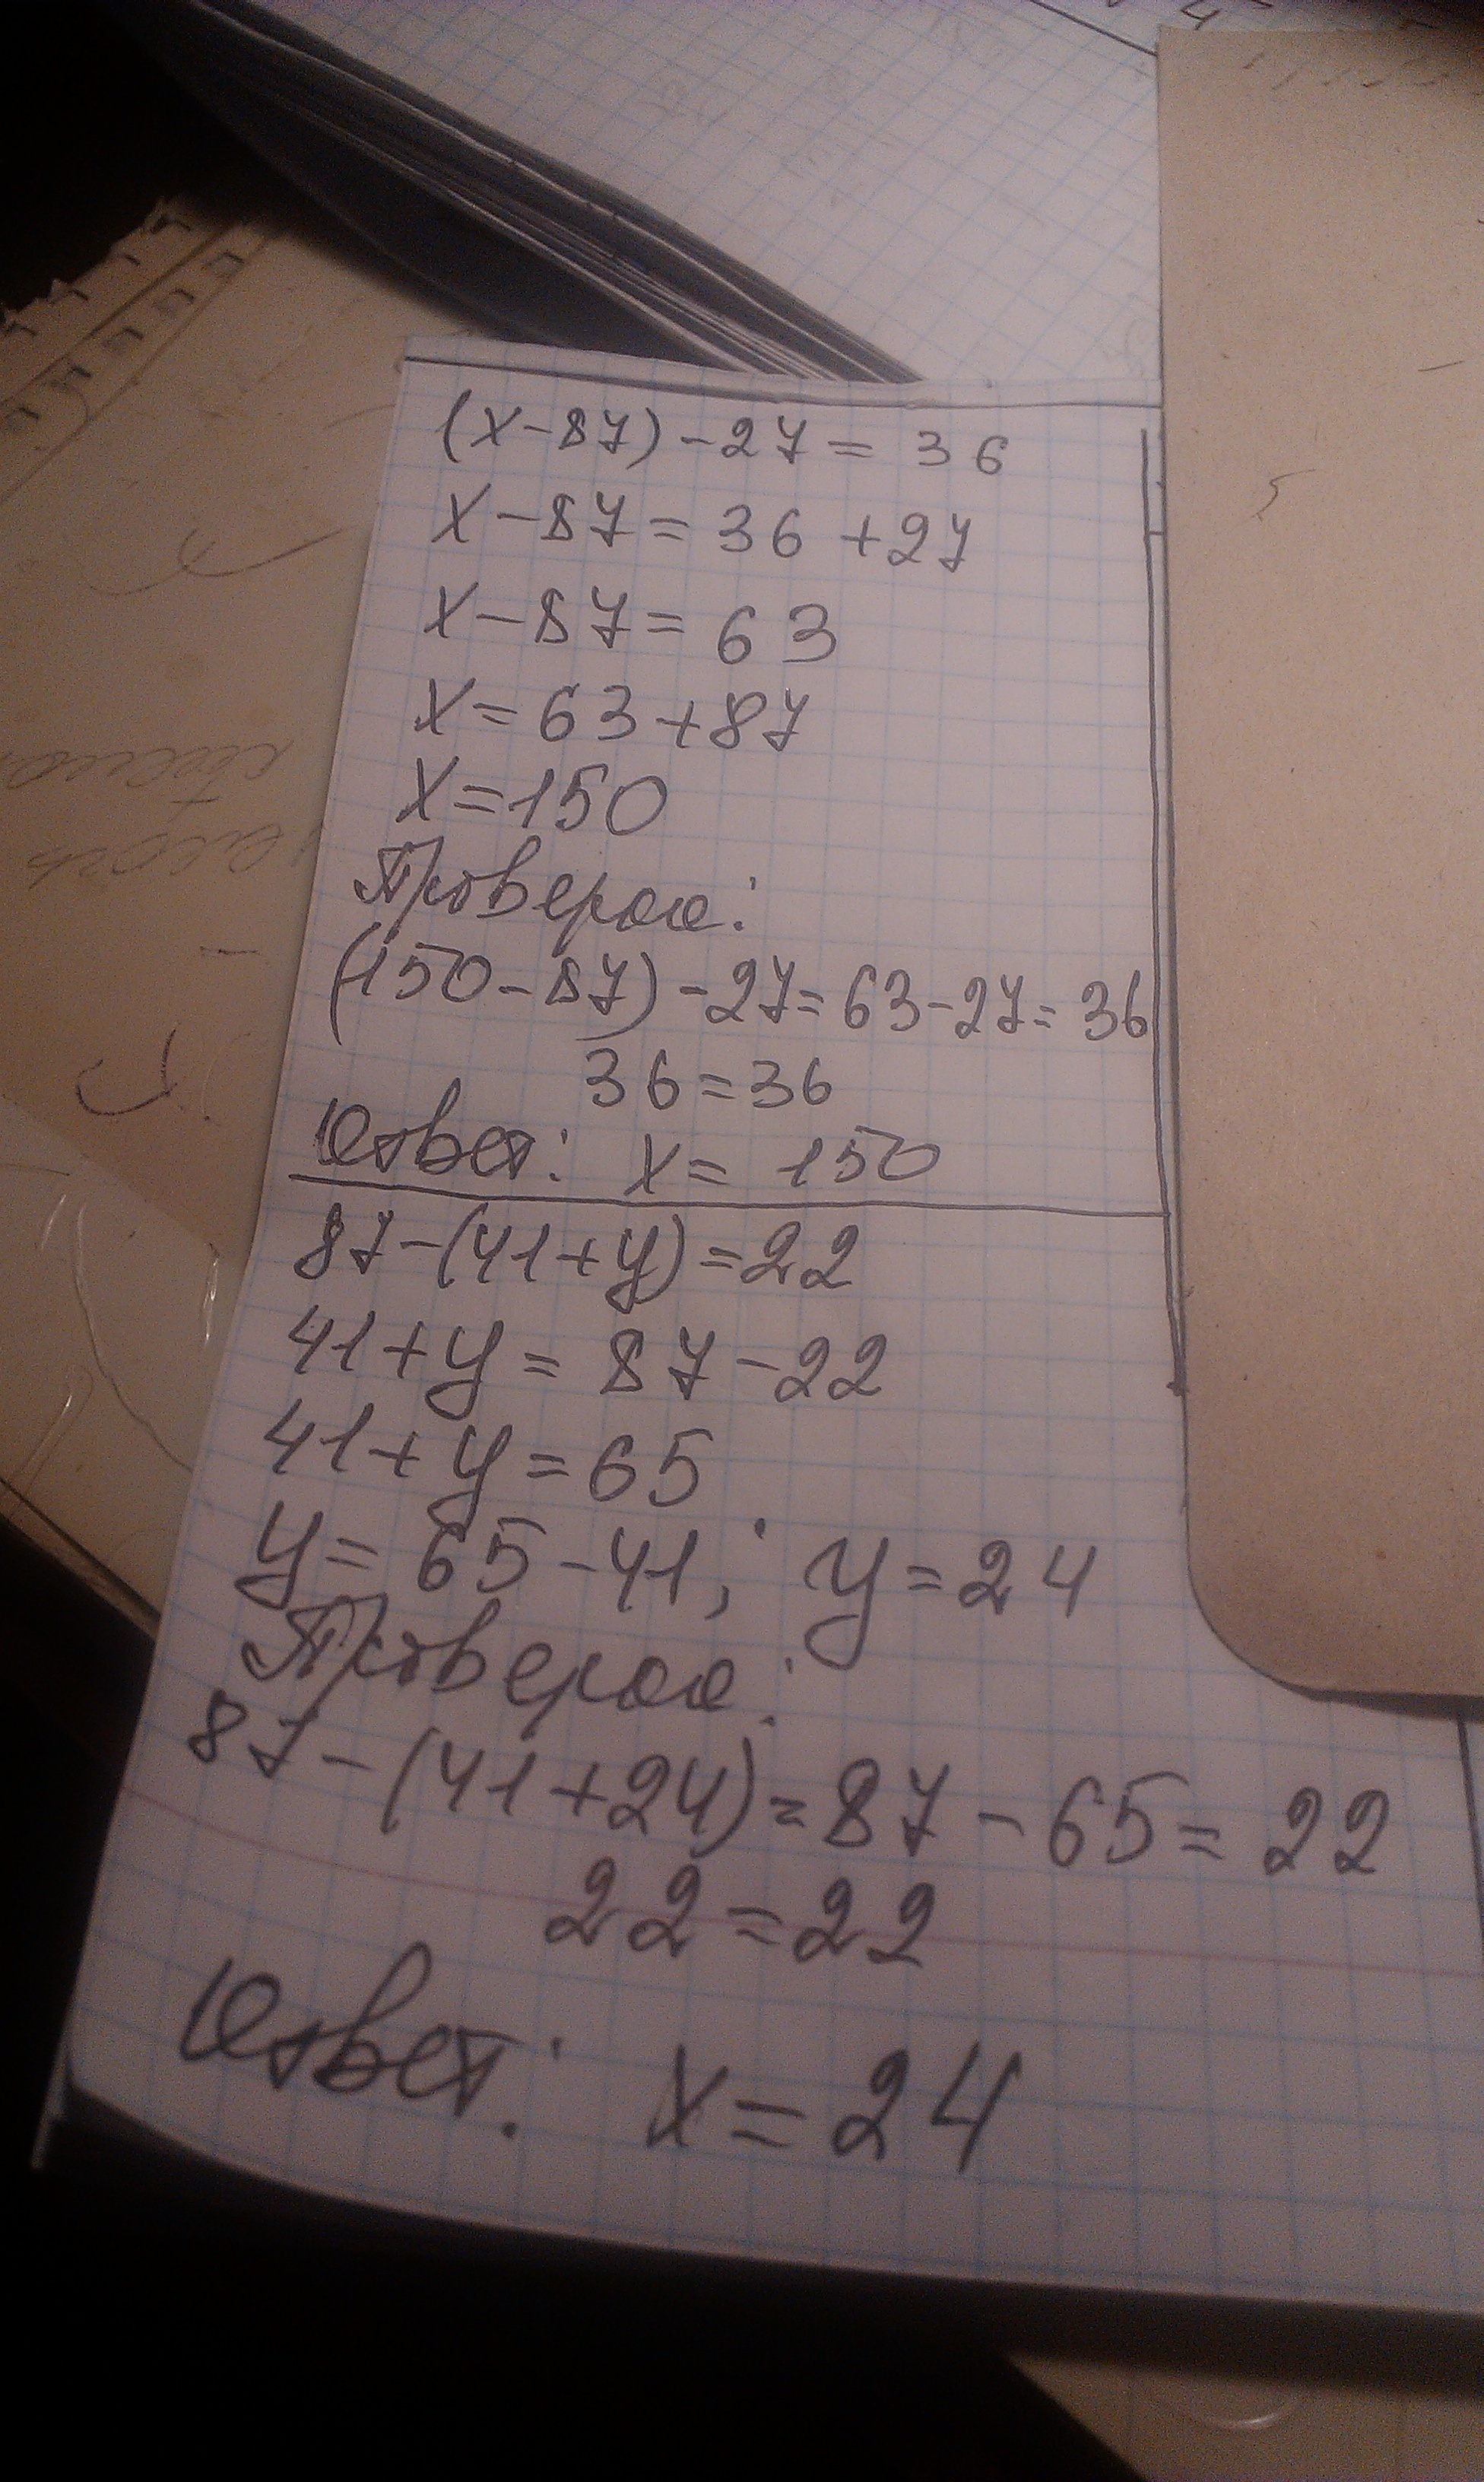 (х-87)-27= 36
х-87=36+27
х-87=63
х=63+87
х=150
Проверка:
(150-87)-27=63-27=36
36=36
Ответ: х= 150
87-(41+у)=22
41+у= 87-22
41+у=65
у= 65-41; у=24
Проверка:
87-(41+24)=87-65=22
22=22
Ответ: х=24